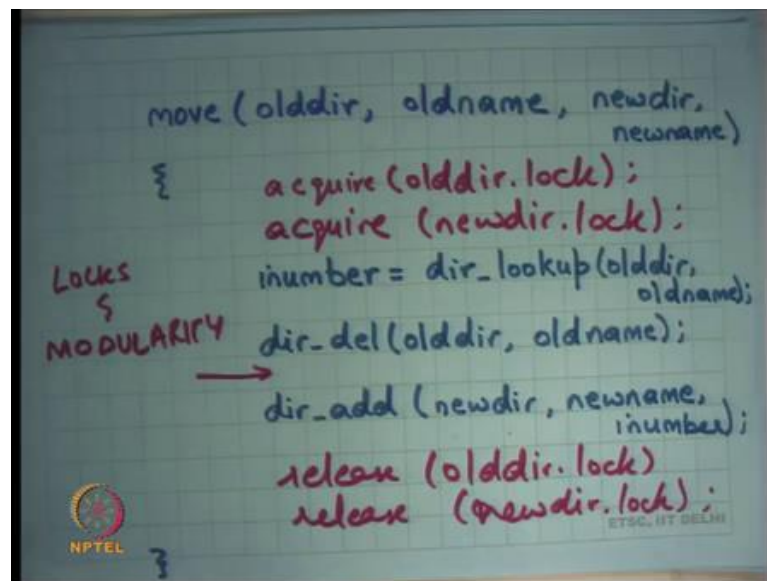 move (olddir, oldname, newdir,
newname)
{ acquire (olddir.lock);
acquire (newdir.lock);
inumber = dir_lookup(olddir,
oldname);
LOCKS
&
MODULARITY
dir_del(olddir, oldname);
dir_add (newdir, newname,
inumber);
release (olddir.lock)
release (newdir.lock);
}
NPTEL
ETSC, IIT DELHI